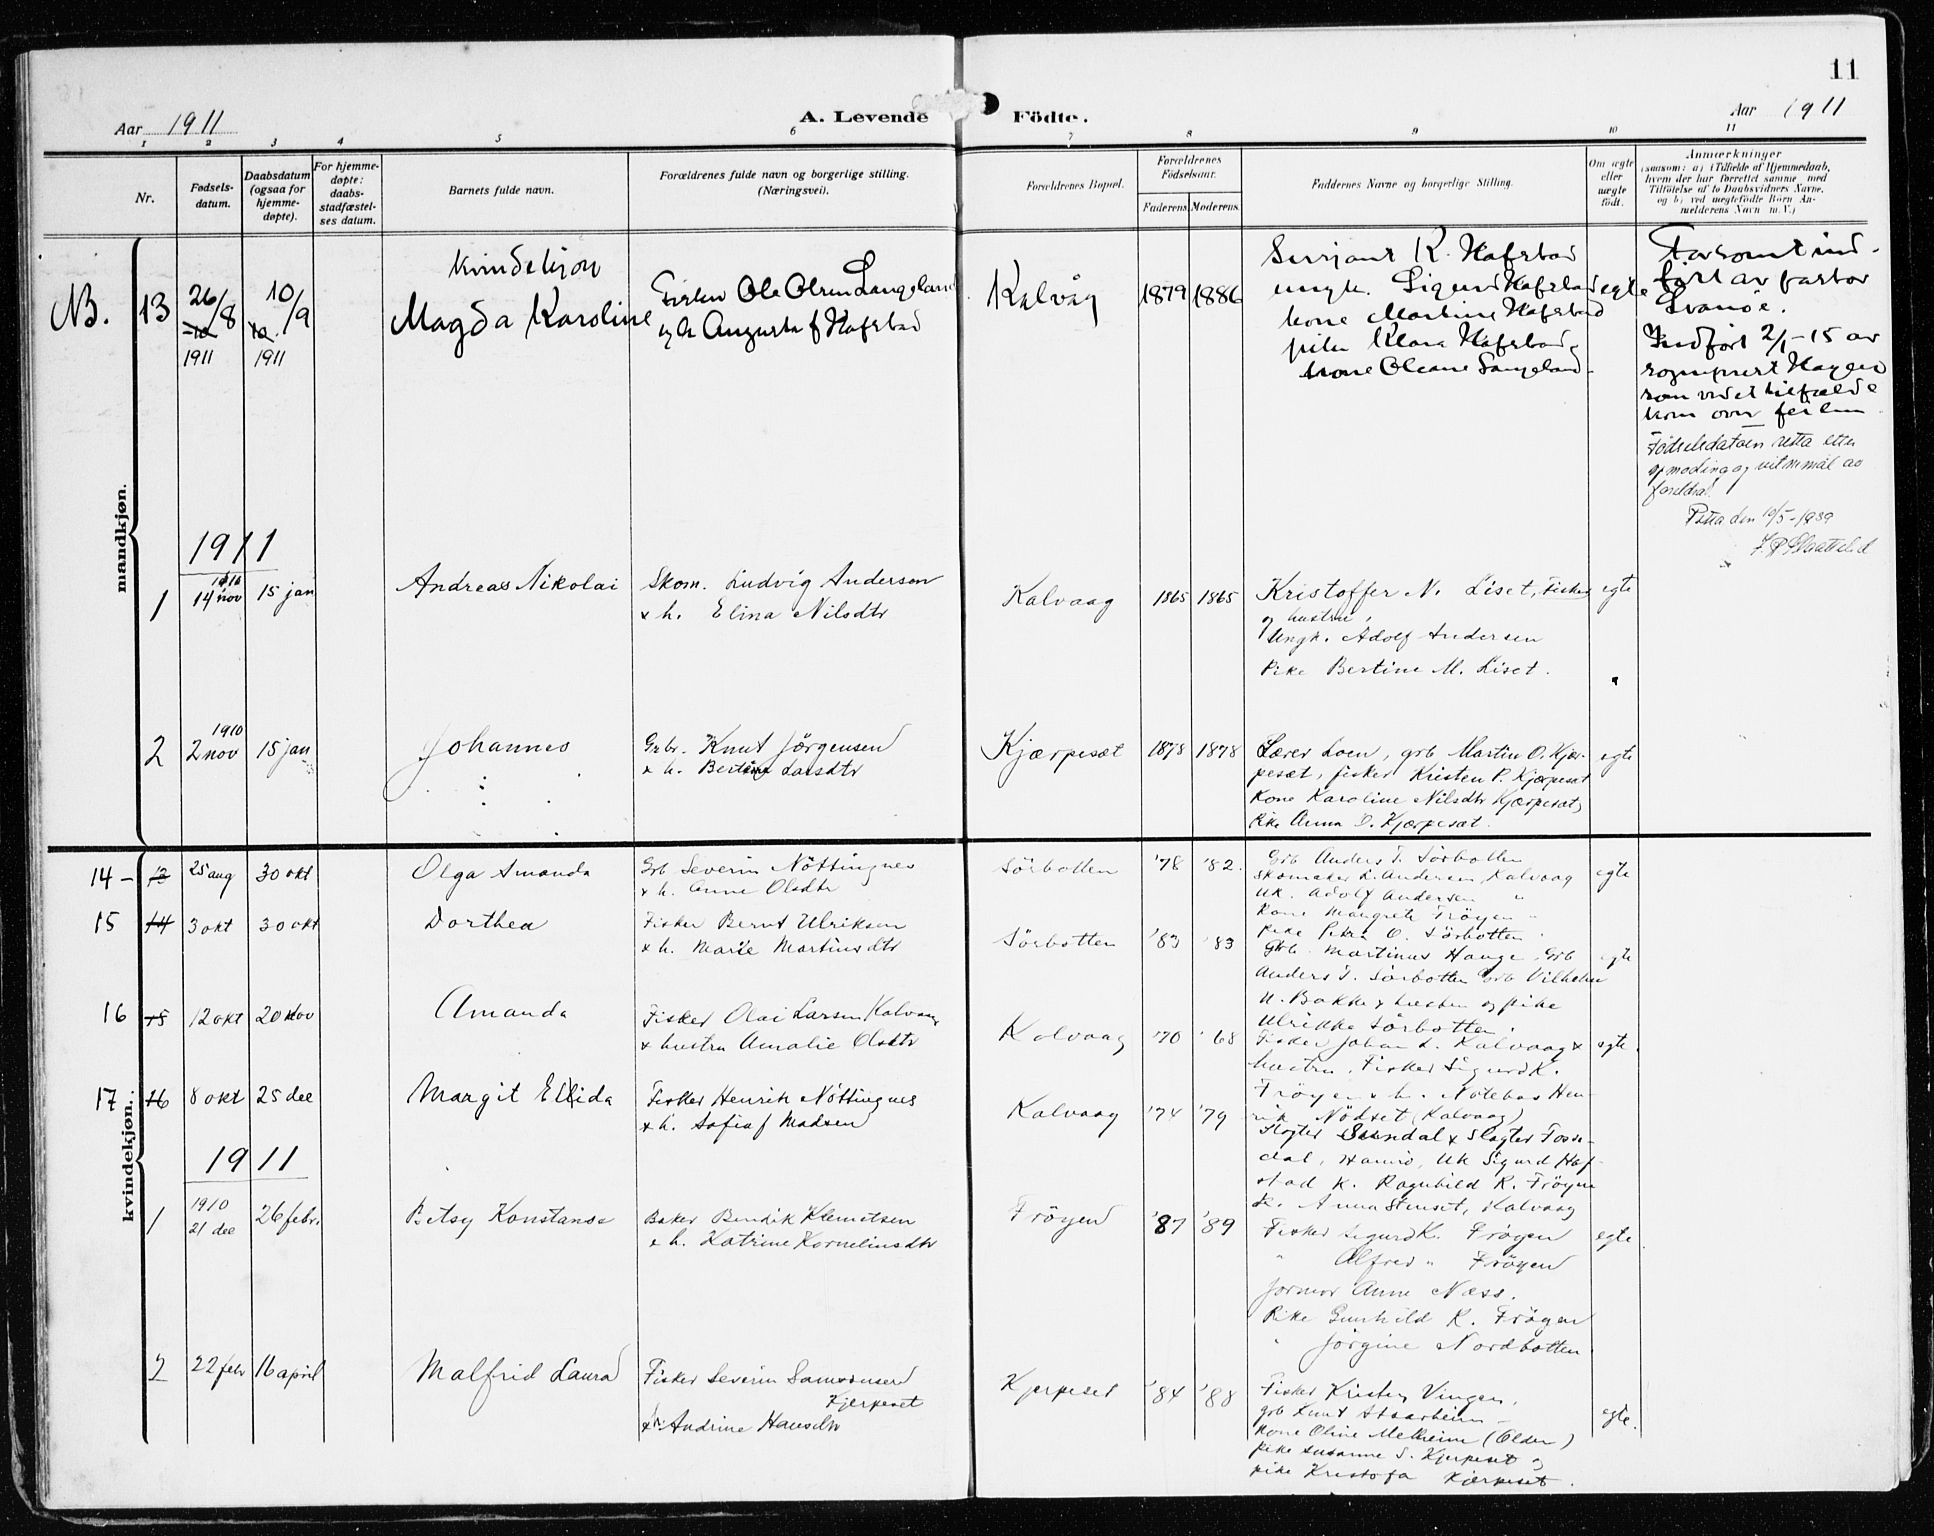 11
Aar 1911
A. Levende Födte.
Aar 1911
1 2 3 4 5 6 7 8 9 10 11
Nr.
Fødsels-
datum.
Daabsdatum
(ogsaa for
hjemme-
døpte).
For hjemme-
døpte:
daabs-
stadfæstel-
ses datum.
Barnets fulde navn.
Forældrenes fulde navn og borgerlige stilling.
(Næringsvei).
Forældrenes Bopæl.
Forældrenes
Födselsaar.
Faderens. Moderens.
Faddernes Navne og borgerlige Stilling.
Om ægte
eller
uægte
født.
Anmærkninger
(saasom: a) i Tilfælde af Hjemmedaab,
hvem der har forrettet samme med
Tilföielse af to Daabsvidners Navne,
og b) ved uegtefödte Börn An-
melderens Navn m. V.)
mandkjøn.
NB. 13
26/8
1911
10/9
1911
Kvindekjøn
Magda Karoline
Fisker Ole Olsen Langeland
og h Augusta f Hafstad
Kalvåg
1879 1886
Serjant K. Hafstad
ungk. Sigurd Hafstad
kone Martine Hafstad
pike Klara Hafstad
kone Oleane Langeland
egte
Forsømt ind-
ført av pastor
Svanöe.
Indført 2/1-15 av
sogneprest Hagen
som ved et tilfælde
kom over feilen
Fødselsdatoen retta etter
opmoding og vitnemål av
foreldra.
den 10/5-1939
1911
1
1910
14 nov
15 jan
Andreas Nikolai
Skom. Ludvig Andersen
& h. Elina Nilsdtr
Kalvaag
1865 1865
Kristoffer N. Liset, Fisker
og hustru,
Ungk. Adolf Andersen
Pike Bertine M. Liset.
egte
2
1910
2 nov
15 jan
Johannes
Gbr. Knut Jörgensen
& h. Bertine Larsdtr
Kjærpesæt
1878 1878
Lærer Loen, grb Martin O. Kjær-
pesæt, fisker Kristen P. Kjærpesæt
Kone Karoline Nilsdtr Kjærpesæt,
Pike Anna O. Kjærpesæt.
egte
kvindekjøn.
14 - 13
25 aug
30 okt
Olga Amanda
Grb Severin Nöttingnes
& h. Anne Olsdtr
Sörbotten
'78 '82.
Grb Anders T. Sörbotten
Skomaker L. Andersen, Kalvaag
UK. Adolf Andersen "
Kone Margrete Fröyen "
pike Petra O. Sörbotten.
egte
15 14
3 okt
30 okt
Dorthea
Fisker Bernt Ulriksen
& h. Marie Martinusdtr
Sörbotten
'83 '83
Grb. Martinus Hauge Grb
Anders T. Sörbotten Grb Vilhelm
N. Bakke & hustru og pike
Ulrikke Sörbotten.
egte
16 15
12 okt
20 nov
Amanda
Fisker Olai Larsen Kalvaag
& hustru Amalie Olsdtr
Kalvaag
'70 '68
Fisker Johan L. Kalvaag &
hustru. Fisker Sigurd K.
Fröyen & h. Notebas Hen-
rik Nödset (Kalvaag)
egte.
17 16
8 okt
25 dec
Margit Ellida
Fisker Henrik Nöttingnes
& h. Sofie f Madsen
Kalvaag
'74 '79
Slogter Sundal & Slagter Fosse-
dal, UK Sigurd Haf-
stad K. Ragnhild K. Fröyen
K. Anna Stenset, Kalvaag
1911
1
1910
21 dec
26 febr.
Betsy Konstanse
Baker Bendik Klemetsen
& h. Katrine Korneliusdtr
Fröyen
'87 '89
Fisker Sigurd K. Fröyen
" Alfred " Fröyen
Jormor Anne Næss.
Pike Gunhild K. Fröyen
" Jörgine Nordbotten
egte
2
22 febr
16 april
Malfrid Laura
Fisker Severin Samsonsen
Kjerpeset
& h. Andrine Hansdtr
Kjerpeset
'84 '88
Fisker Kristen Vingen,
grb Knut Staarheim
Kone Oline Melheim (Olden)
pike Susanne S. Kjerpeset og
pike Kristofa Kjerpeset.
egte.